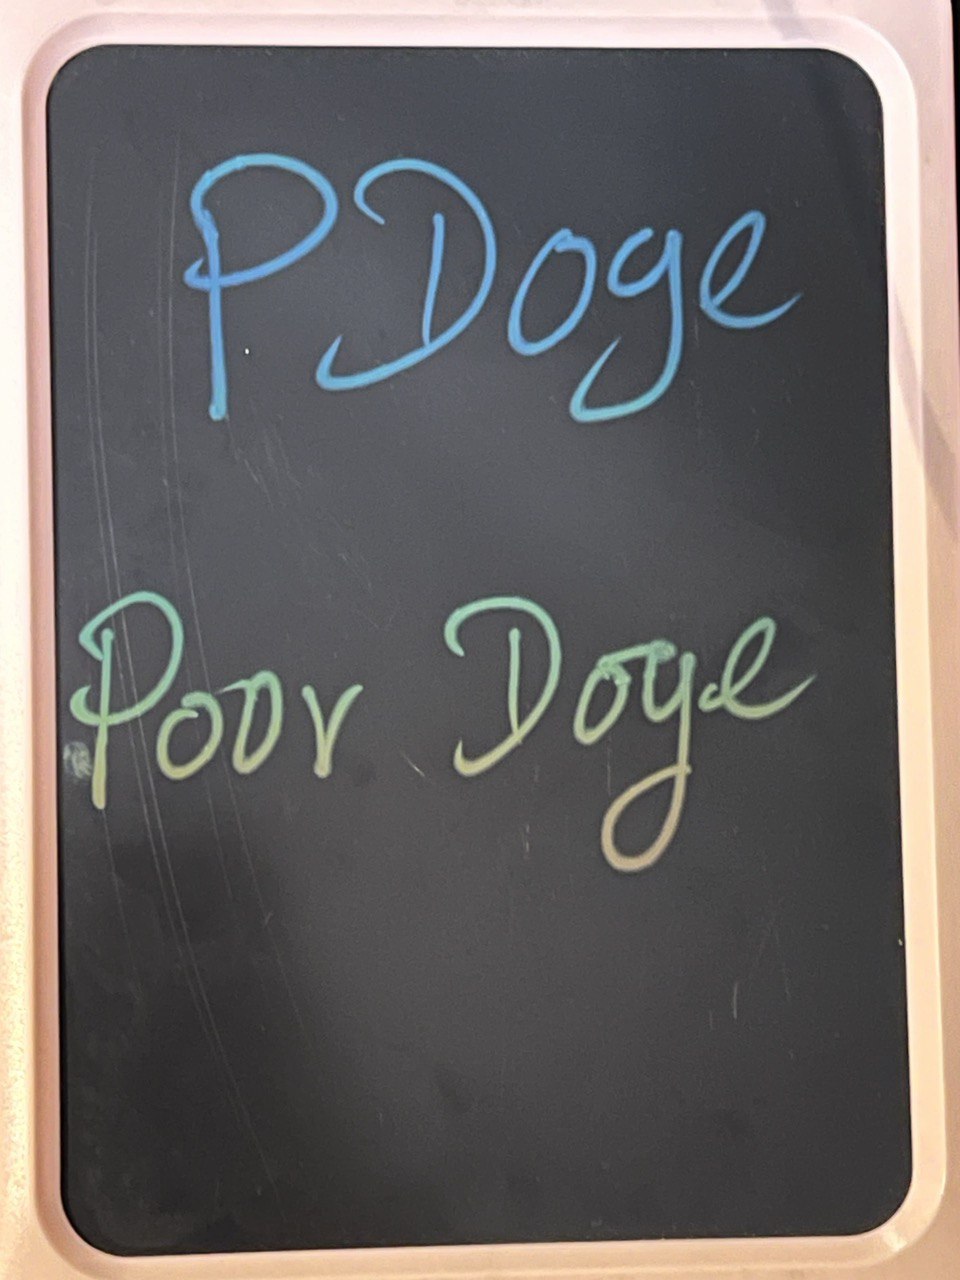 P Doge
Poor Doge